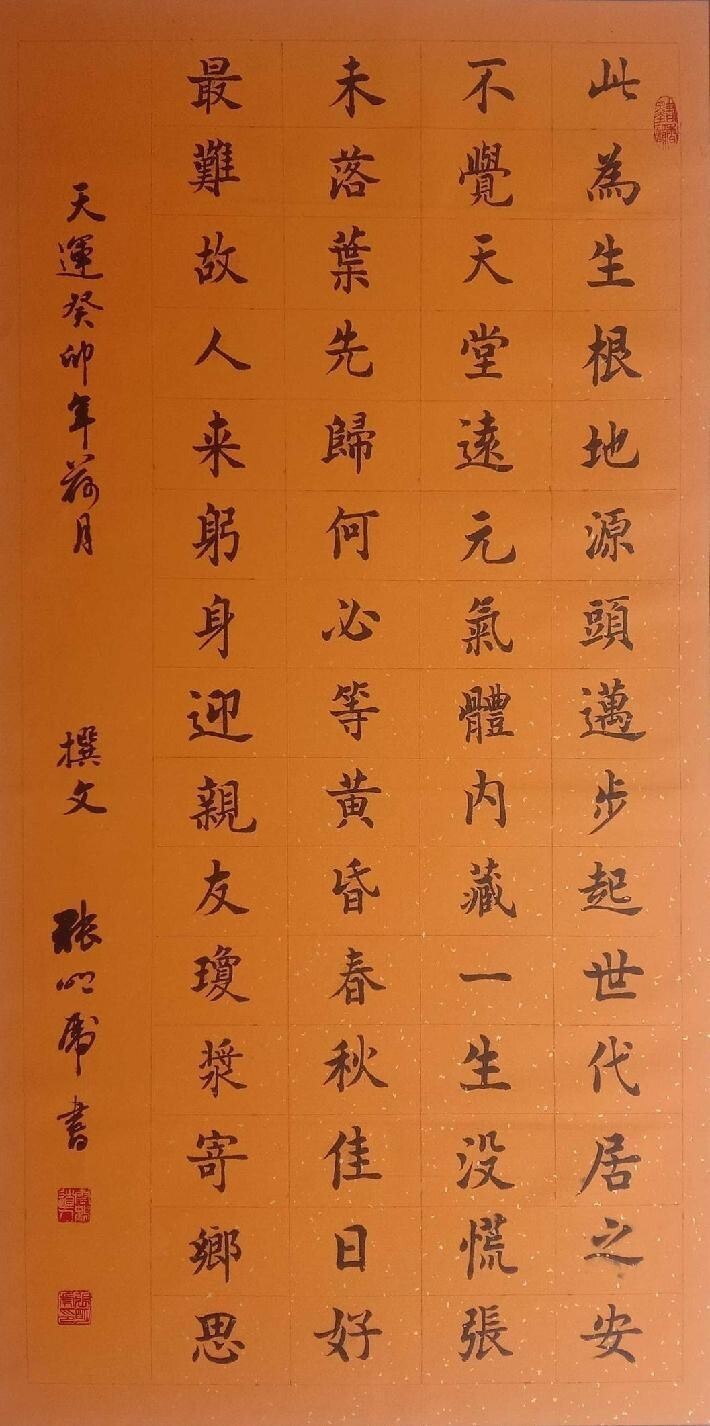 此為生根地源頭邁步起世代居之安
不覺天堂遠元氣體内藏一生没慌張
未落葉先歸何必等黄昏春秋佳日好
最難故人来躬身迎親友瓊漿寄鄉思
天運癸卯年荷月 撰文 張明虎書